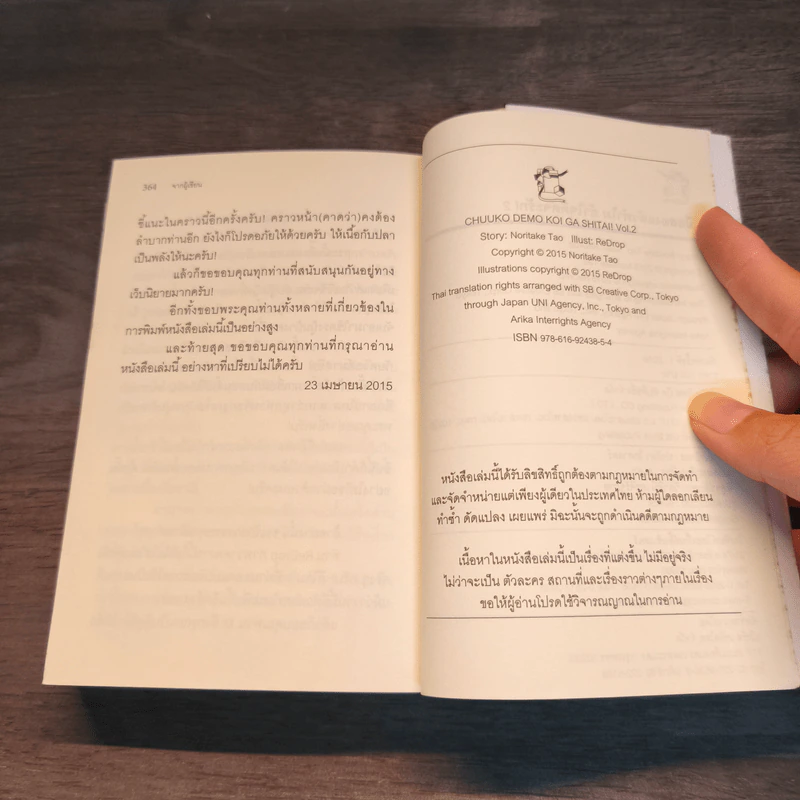 364 จากผู้เขียน
ชี้แนะในคราวนี้อีกครั้งครับ! คราวหน้า(คาดว่า)คงต้อง
ลำบากท่านอีก ยังไงก็โปรดอภัยให้ด้วยครับ ให้เนื้อกับปลา
เป็นพลังให้นะครับ!
แล้วก็ขอขอบคุณทุกท่านที่สนับสนุนกันอยู่ทาง
เว็บนิยายมากครับ!
อีกทั้งขอบพระคุณท่านทั้งหลายที่เกี่ยวข้องใน
การพิมพ์หนังสือเล่มนี้เป็นอย่างสูง
และท้ายสุด ขอขอบคุณทุกท่านที่กรุณาอ่าน
หนังสือเล่มนี้ อย่างหาที่เปรียบไม่ได้ครับ
23 เมษายน 2015
CHUUKO DEMO KOI GA SHITAI! Vol.2
Story: Noritake Tao Illust: ReDrop
Copyright © 2015 Noritake Tao
Illustrations copyright © 2015 ReDrop
Thai translation rights arranged with SB Creative Corp., Tokyo
through Japan UNI Agency, Inc., Tokyo and
Arika Interrights Agency
ISBN 978-616-92438-5-4
หนังสือเล่มนี้ได้รับลิขสิทธิ์ถูกต้องตามกฎหมายในการจัดทำ
และจัดจำหน่ายแต่เพียงผู้เดียวในประเทศไทย ห้ามผู้ใดลอกเลียน
ทำซ้ำ ดัดแปลง เผยแพร่ มิฉะนั้นจะถูกดำเนินคดีตามกฎหมาย
เนื้อหาในหนังสือเล่มนี้เป็นเรื่องที่แต่งขึ้น ไม่มีอยู่จริง
ไม่ว่าจะเป็น ตัวละคร สถานที่และเรื่องราวต่างๆภายในเรื่อง
ขอให้ผู้อ่านโปรดใช้วิจารณญาณในการอ่าน